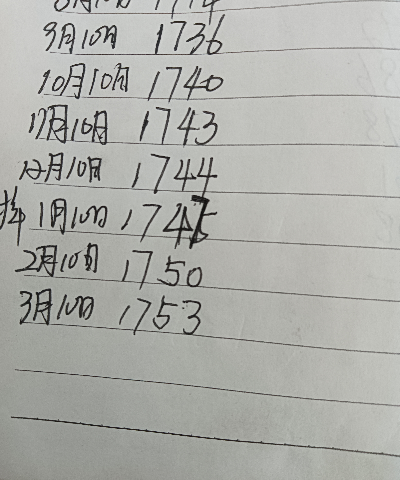 9月10日 1736
10月10日 1740
11月10日 1743
12月10日 1744
1月10日 1747
2月10日 1750
3月10日 1753